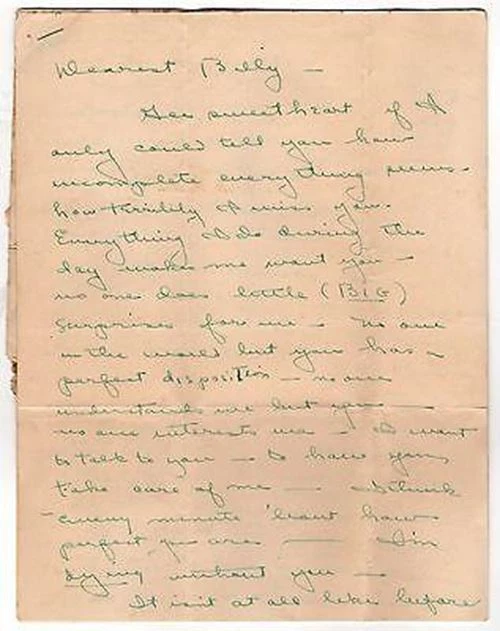 Dearest Billy —
Gee sweetheart if I
only could tell you how
incomplete everything seems -
how terribly I miss you.
Everything I do during the
day makes me want you —
no one does little (BIG)
surprises for me - no one
in the world but you has a
perfect disposition — no one
understands me but you —
no one interests me - I want
to talk to you — to have you
take care of me — I think
every minute 'bout how
perfect you are — I'm
dying without you —
It isn't at all like before